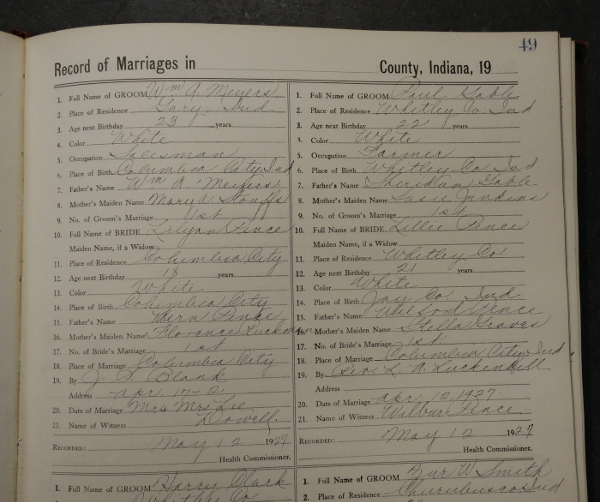 49
Record of Marriages in County, Indiana, 19
1. Full Name of GROOM Wm A Meyers
2. Place of Residence Gary Ind
3. Age next Birthday 23 years
4. Color White
5. Occupation Salesman
6. Place of Birth Columbia City Ind
7. Father's Name Wm A Meyers
8. Mother's Maiden Name Mary A
9. No. of Groom's Marriage 1st
10. Full Name of BRIDE Lilyan Pence
Maiden Name, if a Widow
11. Place of Residence Columbia City
12. Age next Birthday 18 years
13. Color White
14. Place of Birth Columbia City
15. Father's Name Pence
16. Mother's Maiden Name Florence
17. No. of Bride's Marriage 1st
18. Place of Marriage Columbia City
19. By
Address Apr. 17-
20. Date of Marriage Mrs Mrs Lee
21. Name of Witness Dowell
RECORDED: May 12 1927
Health Commissioner.
1. Full Name of GROOM Harry Clark
1. Full Name of GROOM Paul Gable
2. Place of Residence Whitley Co Ind
3. Age next Birthday 22 years
4. Color White
5. Occupation Farmer
6. Place of Birth Whitley Co Ind
7. Father's Name Sheridan Gable
8. Mother's Maiden Name Susie Jenkins
9. No. of Groom's Marriage 1st
10. Full Name of BRIDE Lillie Pence
Maiden Name, if a Widow
11. Place of Residence Whitley Co
12. Age next Birthday 21 years
13. Color White
14. Place of Birth Jay Co Ind
15. Father's Name Pence
16. Mother's Maiden Name Stella Graves
17. No. of Bride's Marriage 1st
18. Place of Marriage Columbia City Ind
19. By Rev L A Luckenbill
Address
20. Date of Marriage Apr 10 1927
21. Name of Witness Wilbur Pence
RECORDED: May 12 1927
Health Commissioner.
1. Full Name of GROOM W Smith
2. Place of Residence Churubusco Ind